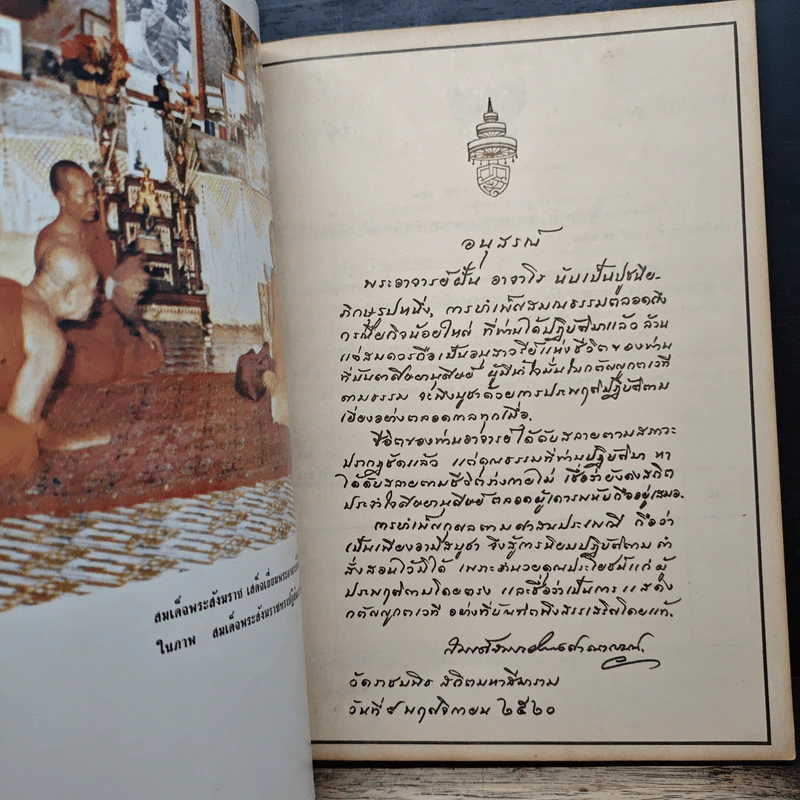 สมเด็จพระสังฆราช เสด็จเยี่ยมพระอาจารย์
ในภาพ สมเด็จพระสังฆราชทรง
อนุสรณ์
พระอาจารย์ฝั้น อาจาโร นับเป็นปูชนีย-
ภิกษุรูปหนึ่ง, การบำเพ็ญสมณธรรมตลอดถึง
กรณียกิจน้อยใหญ่ ที่ท่านได้ปฏิบัติมาแล้ว ล้วน
แต่สมควรถือเป็นอนุสาวรีย์แห่งชีวิตของท่าน
ที่บรรดาศิษยานุศิษย์ ผู้มีน้ำใจมั่นในกตัญญูกตเวที
ตามธรรม จะพึงบูชาด้วยการประพฤติปฏิบัติตาม
เยี่ยงอย่างตลอดกาลทุกเมื่อ.
ชีวิตของท่านอาจารย์ได้ดับสลายตามสภาวะ
ปรากฏชัดแล้ว แต่คุณธรรมที่ท่านปฏิบัติมา หา
ได้ดับสลายตามชีวิตร่างกายไม่ เชื่อว่ายังคงสถิต
ประจำใจศิษยานุศิษย์ ตลอดผู้เคารพนับถืออยู่เสมอ.
การบำเพ็ญกุศลตามศาสนประเพณี ถือว่า
เป็นเพียงอามิสบูชา จึงสู้การนิยมปฏิบัติตามคำ
สั่งสอนไว้มิได้ เพราะอำนวยคุณประโยชน์แก่ผู้
ประพฤติตามโดยตรง และชื่อว่าเป็นการแสดง
กตัญญูกตเวที อย่างที่บัณฑิตพึงสรรเสริญโดยแท้.
วัดราชบพิธ สถิตมหาสีมาราม
วันที่ ๙ พฤศจิกายน ๒๕๒๐